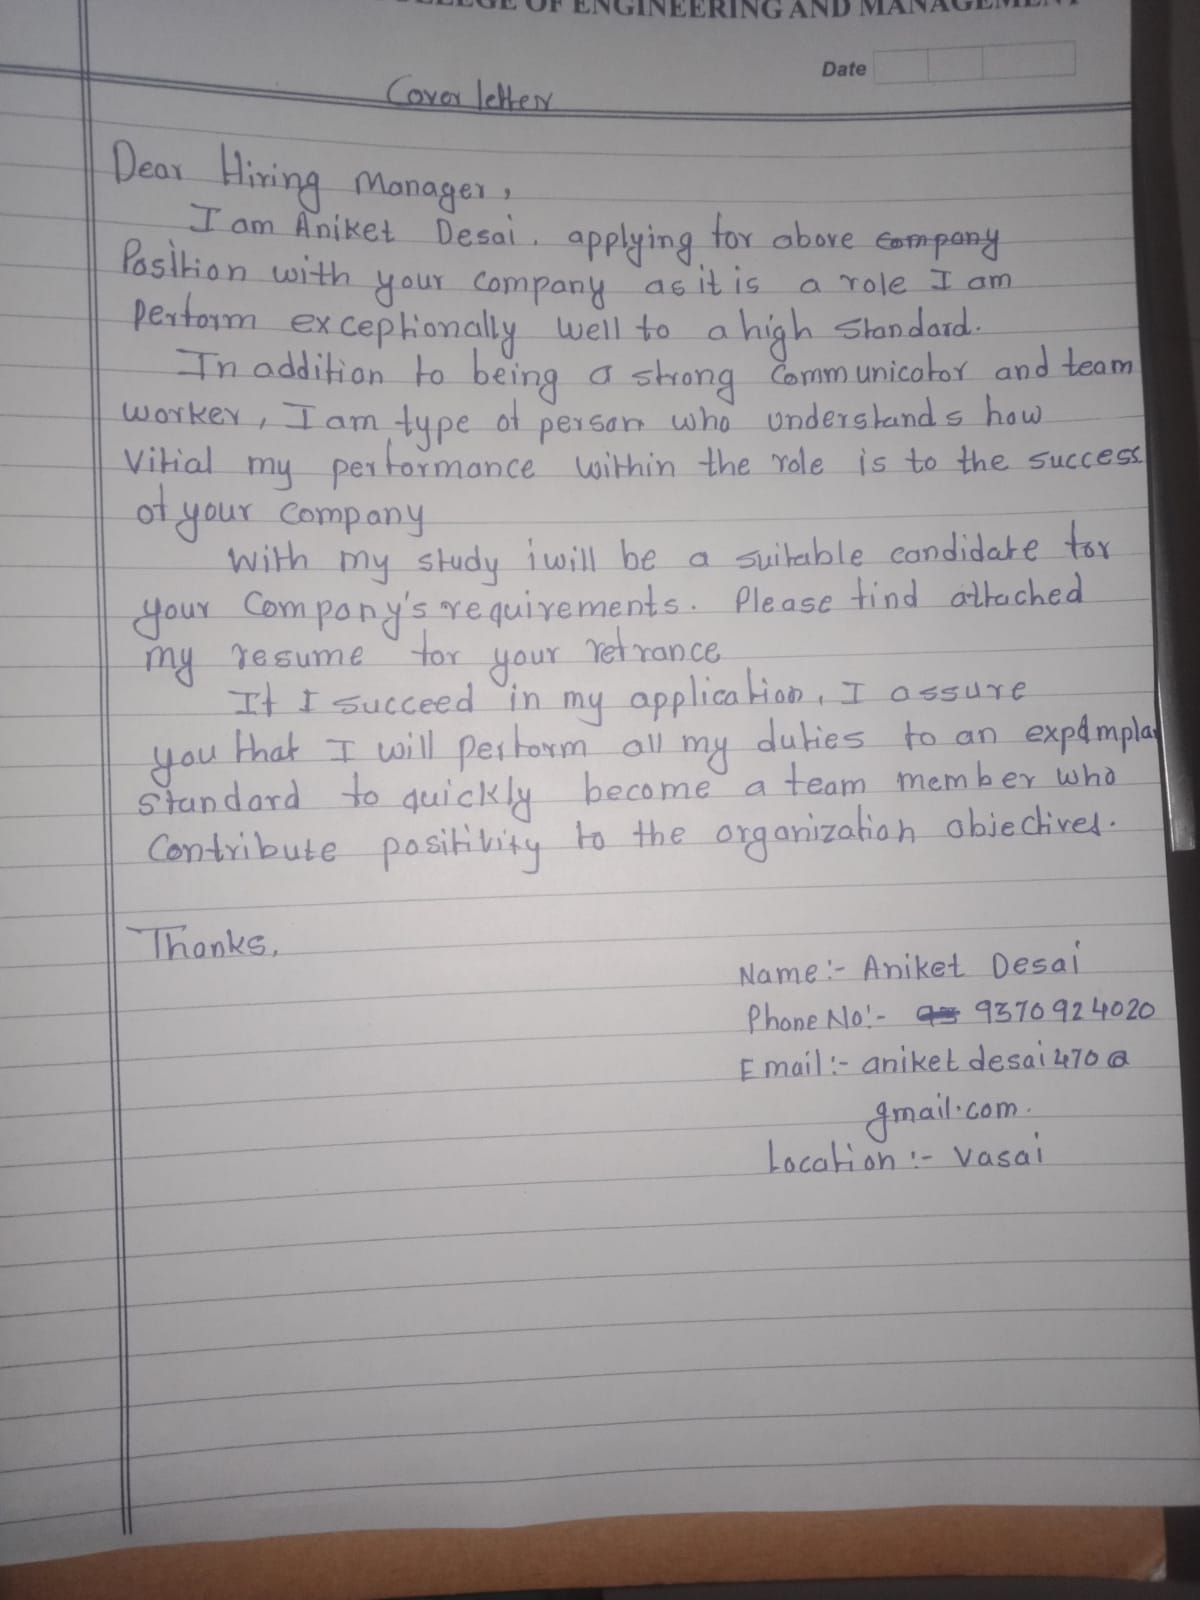 OF ENGINEERING AND MANAGEMENT
Date
Cover letter
Dear Hiring Manager,
I am Aniket Desai, applying for above company
Position with your company as it is a role I am
perform exceptionally well to a high standard.
In addition to being a strong communicator and team
worker, I am type of person who understands how
Vitial my performance within the role is to the success
of your company
With my study i will be a suitable candidate for
your Company's requirements. Please find attached
my resume for your refrance
If I succeed in my application, I assure
you that I will perform all my duties to an
standard to quickly become a team member who
Contribute positivity to the organization objectives.
Thanks,
Name:- Aniket Desai
Phone No:- 9370924020
Email:- aniketdesai470@
gmail.com.
Location:- Vasai